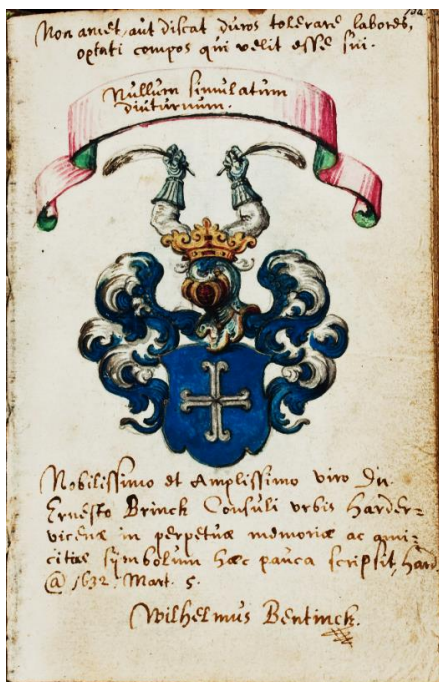 Non amet, aut discat duros tolerare labores,
optati compos qui velit esse sui.
Nullum simulatum
diuturnum.
Nobilissimo et Amplissimo viro Dn.
Ernesto Brinck Consuli urbis Harder=
vicenæ in perpetuæ memoriæ ac ami=
citiæ symbolum hæc pauca scripsit, Hard.
@ 1632. Mart. 5.
Wilhelmus Bentinck.